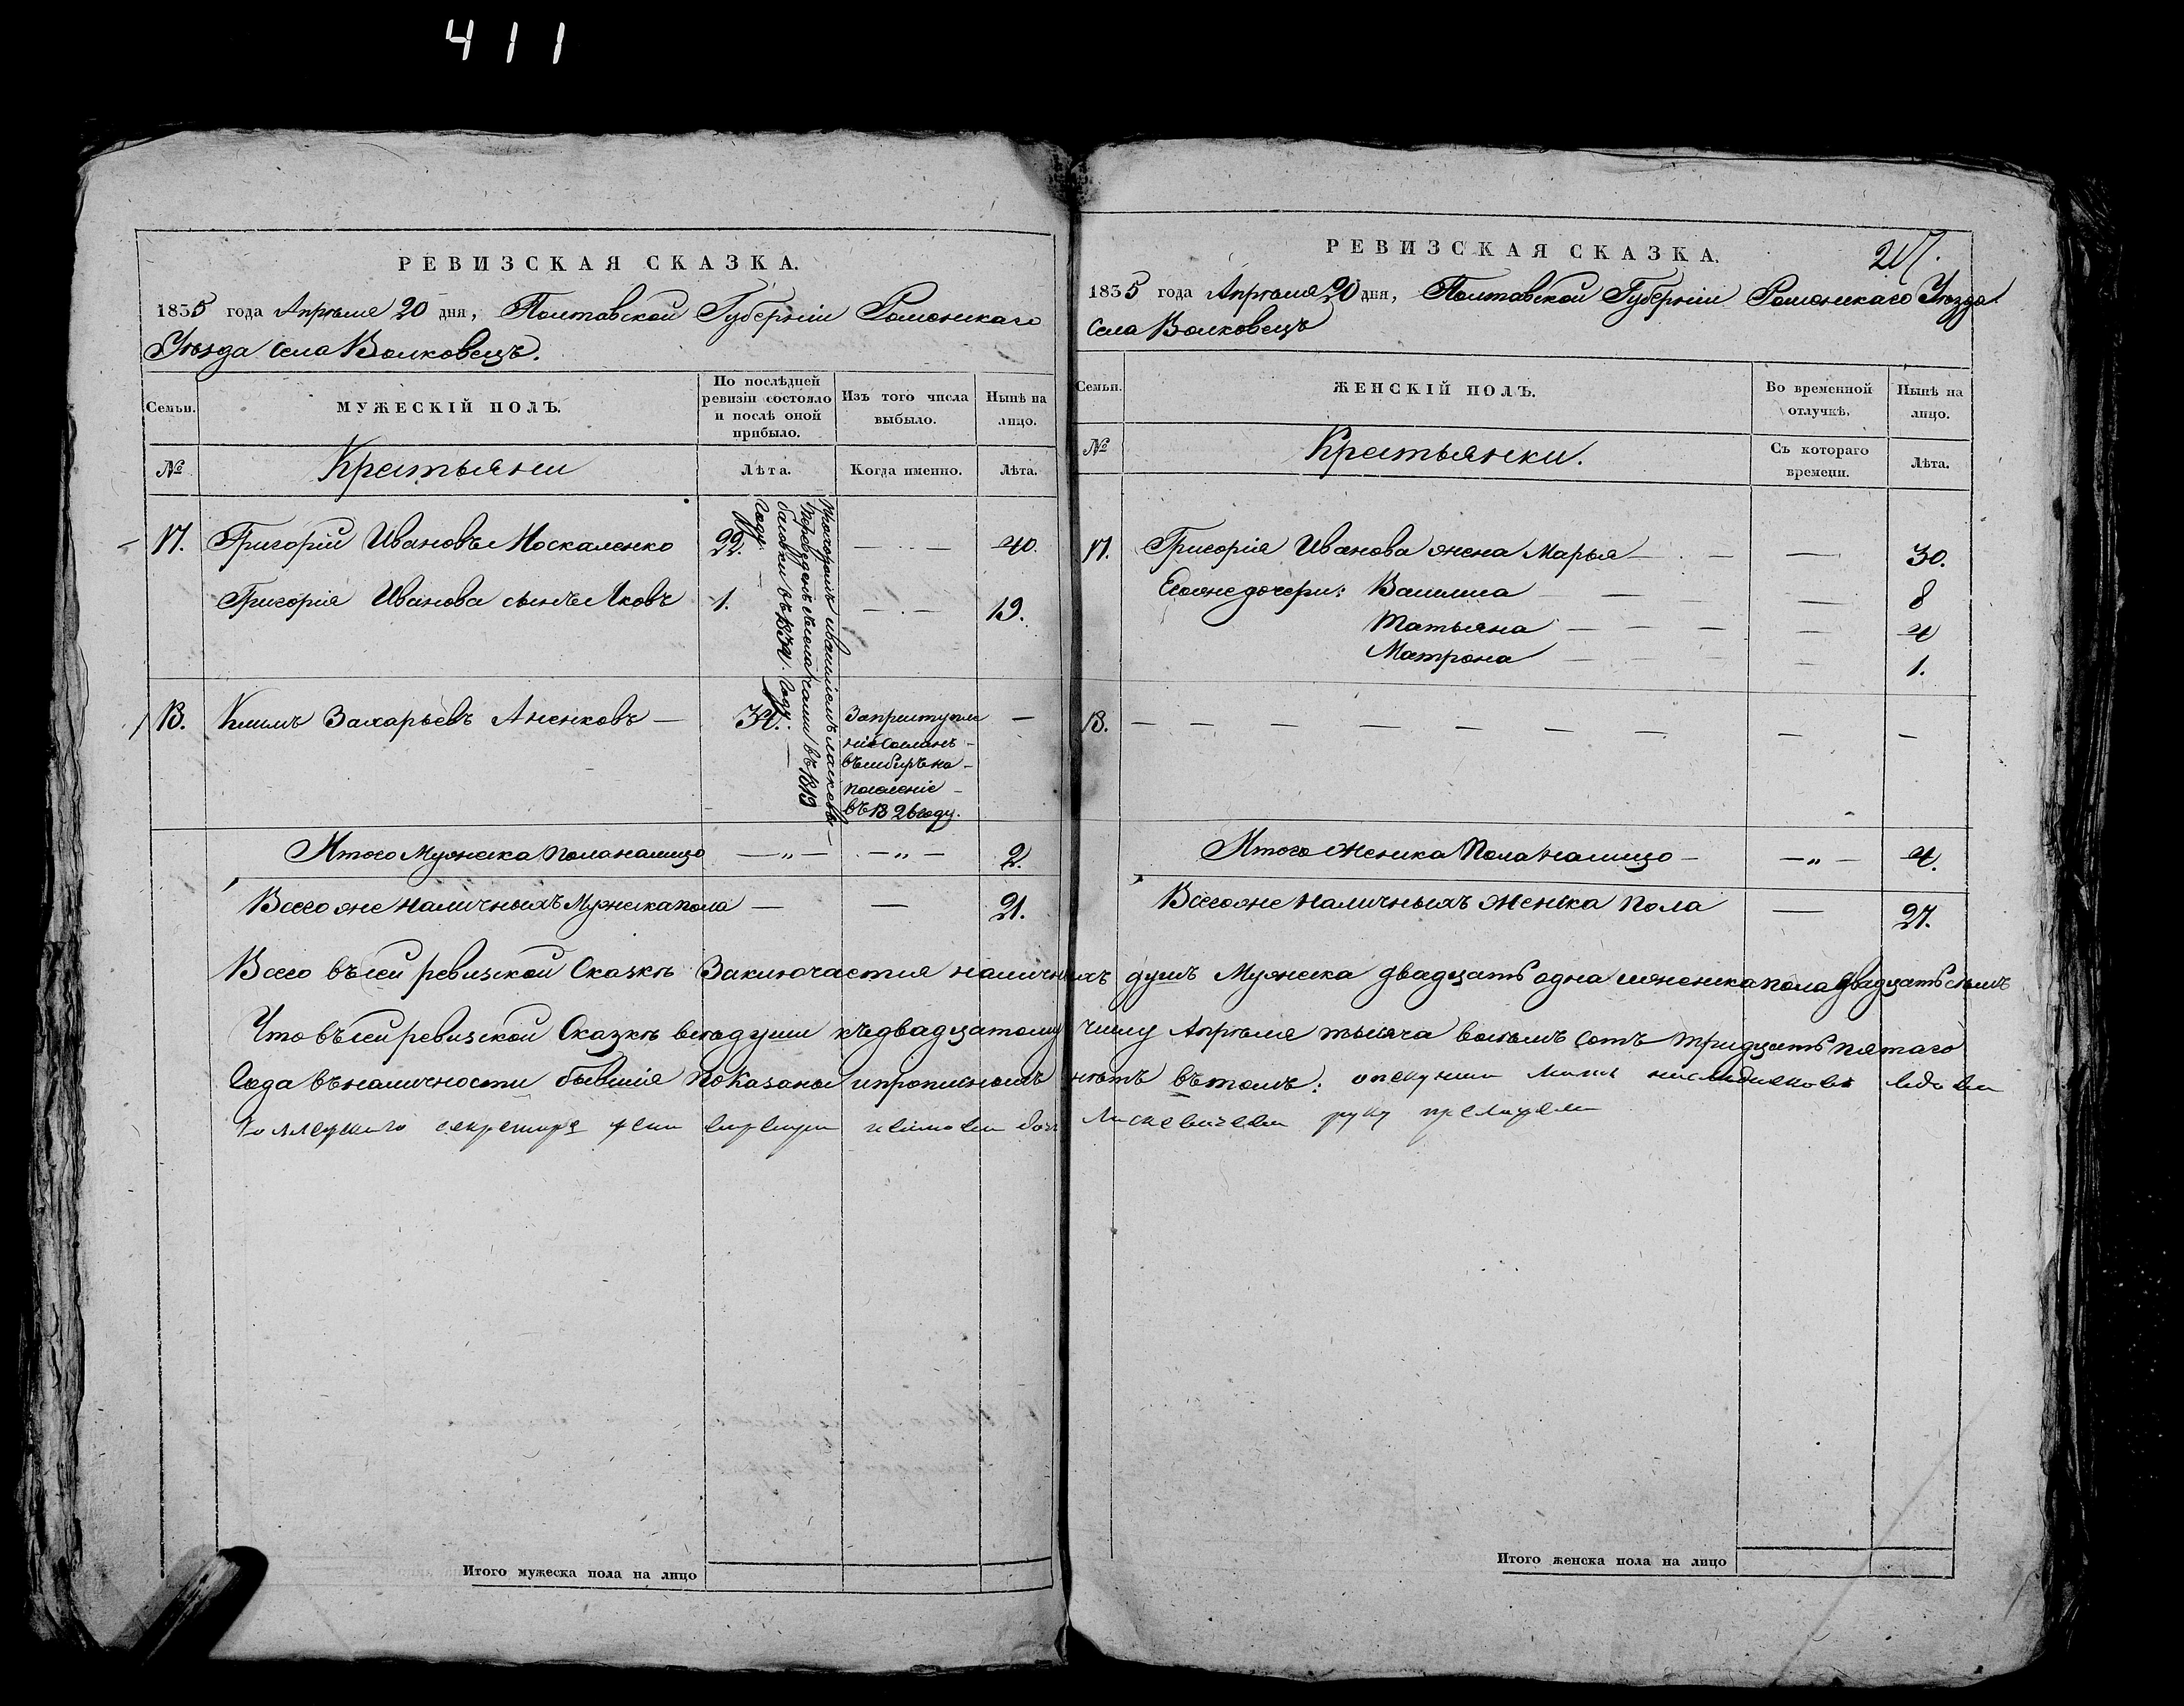 411
РЕВИЗСКАЯ СКАЗКА.
1835 года Апрѣля 20 дня, Полтавской Губерніи Роменскаго
Уѣзда села Волковецъ.
Семьи.
МУЖЕСКІЙ ПОЛЪ.
По послѣдней ревизіи состояло и послѣ оной прибыло.
Изъ того числа выбыло.
Нынѣ на лицо.
№
Крестьяни
Лѣта.
Когда именно.
Лѣта.
17. Григорій Ивановъ Москаленко 22. — 40.
Григорія Иванова сынъ Яковъ 1. — 19.
въ 1834. Году.
18. Климъ Захарьевъ Аненковъ — 34. —
За преступле
ніе сосланъ
въ сибирь на
поселеніе
въ 1826 году.
Итого Мужеска пола налицо — „ — — „ — 2.
Всего же наличныхъ Мужеска пола — — 21.
РЕВИЗСКАЯ СКАЗКА.
217.
1835 года Апрѣля 20 дня, Полтавской Губерніи Роменскаго Уѣзда
Села Волковецъ
Семьи.
ЖЕНСКІЙ ПОЛЪ.
Во временной отлучкѣ.
Нынѣ на лицо.
№
Крестьянки.
Съ котораго времени.
Лѣта.
17. Григорія Иванова жена Марья — — 30.
Егоже дочери: Василиса — — 8
Татьяна — — — 4
Матрона — — — 1.
18. — — — — — — — —
Итого Женска Пола налицо — — „ — 4.
Всегоже наличныхъ Женска пола — 27.
Всего въ сей ревизской Сказкѣ Заключается наличныхъ душъ Мужеска двадцать одна и женска пола двадцать семь
Что въ сей ревизской Сказкѣ всѣ души къ двадцатому числу Апрѣля тысяча восемь сотъ тридцать пятаго
Года въ наличности бывшіе показаны и прописныхъ нѣтъ въ томъ: наслѣдниковъ вдова
коллежскаго секретаря руку приложила
Итого мужеска пола на лицо
Итого женска пола на лицо